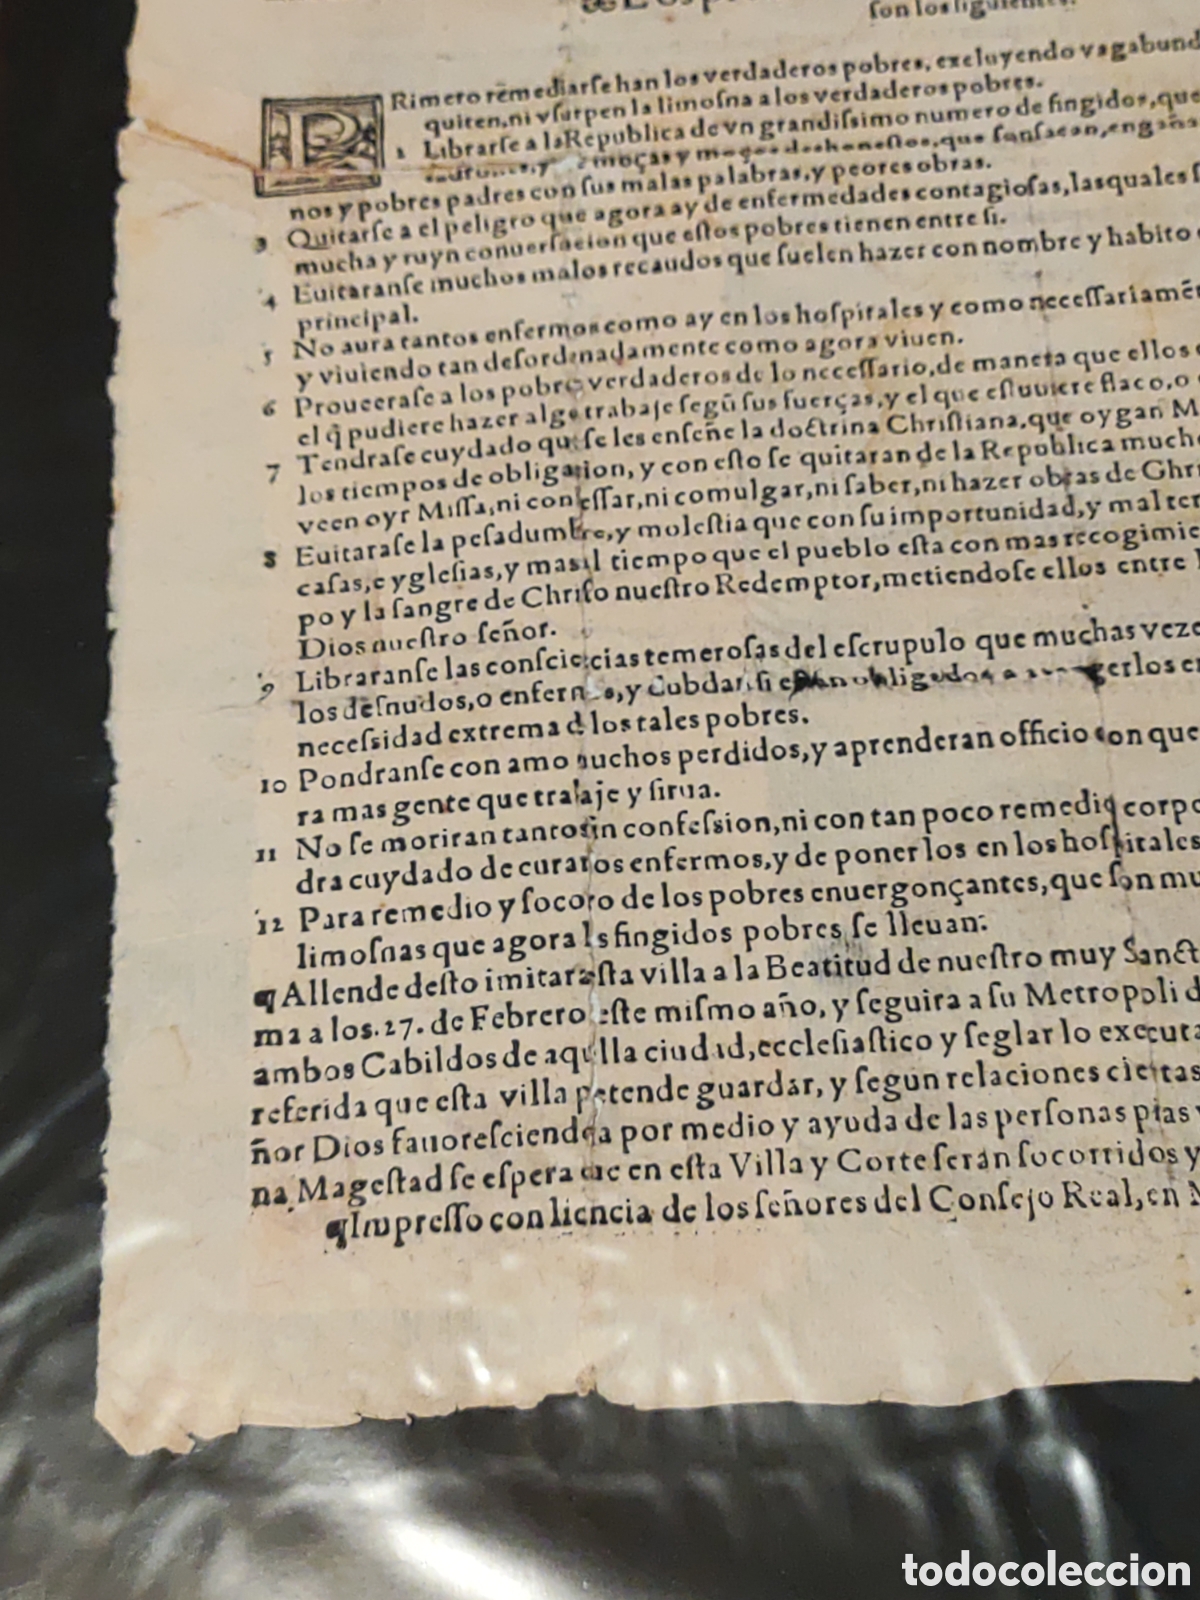 son los siguientes.
PRimero remediarse han los verdaderos pobres, excluyendo vagabund
quiten, ni vsurpen la limosna a los verdaderos pobres.
2 Librarse a la Republica de vn grandissimo numero de fingidos, que
moças y moços deshonestos, que sonsacan, engaña
nos y pobres padres con sus malas palabras, y peores obras.
3 Quitarse a el peligro que agora ay de enfermedades contagiosas, las quales s
mucha y ruyn conuersacion que estos pobres tienen entre si.
4 Euitaranse muchos malos recaudos que suelen hazer con nombre y habito
principal.
5 No aura tantos enfermos como ay en los hospitales y como necessariamẽ
y viuiendo tan desordenadamente como agora viuen.
6 Proueerase a los pobres verdaderos de lo necessario, de manera que ellos
el q̃ pudiere hazer algo trabaje segũ sus fuerças, y el que estuuiere flaco, o
7 Tendrase cuydado que se les enseñe la doctrina Christiana, que oygan M
los tiempos de obligacion, y con esto se quitaran de la Republica mucho
veen oyr Missa, ni confessar, ni comulgar, ni saber, ni hazer obras de Chri
8 Euitarase la pesadumbre, y molestia que con su importunidad, y mal ter
casas, e yglesias, y mas al tiempo que el pueblo esta con mas recogimie
po y la sangre de Christo nuestro Redemptor, metiendose ellos entre
Dios nuestro señor.
9 Libraranse las consciencias temerosas del escrupulo que muchas veze
los desnudos, o enfermos, y dubdan si estan obligados a gerlos en
necessidad extrema d los tales pobres.
10 Pondranse con amo muchos perdidos, y aprenderan officio con que
ra mas gente que trabaje y sirua.
11 No se moriran tantos sin confession, ni con tan poco remedio corpo
dra cuydado de curar los enfermos, y de poner los en los hospitales
12 Para remedio y socoro de los pobres enuergonçantes, que son mu
limosnas que agora los fingidos pobres se lleuan.
¶ Allende desto imitara esta villa a la Beatitud de nuestro muy Sanct
ma a los .27. de Febrero este mismo año, y seguira a su Metropoli d
ambos Cabildos de aquella ciudad, ecclesiastico y seglar lo executa
referida que esta villa petende guardar, y segun relaciones ciertas
ñor Dios fauoresciendola por medio y ayuda de las personas pias y
na Magestad se espera que en esta Villa y Corte seran socorridos y
¶ Impresso con liencia de los señores del Consejo Real, en M
todocoleccion